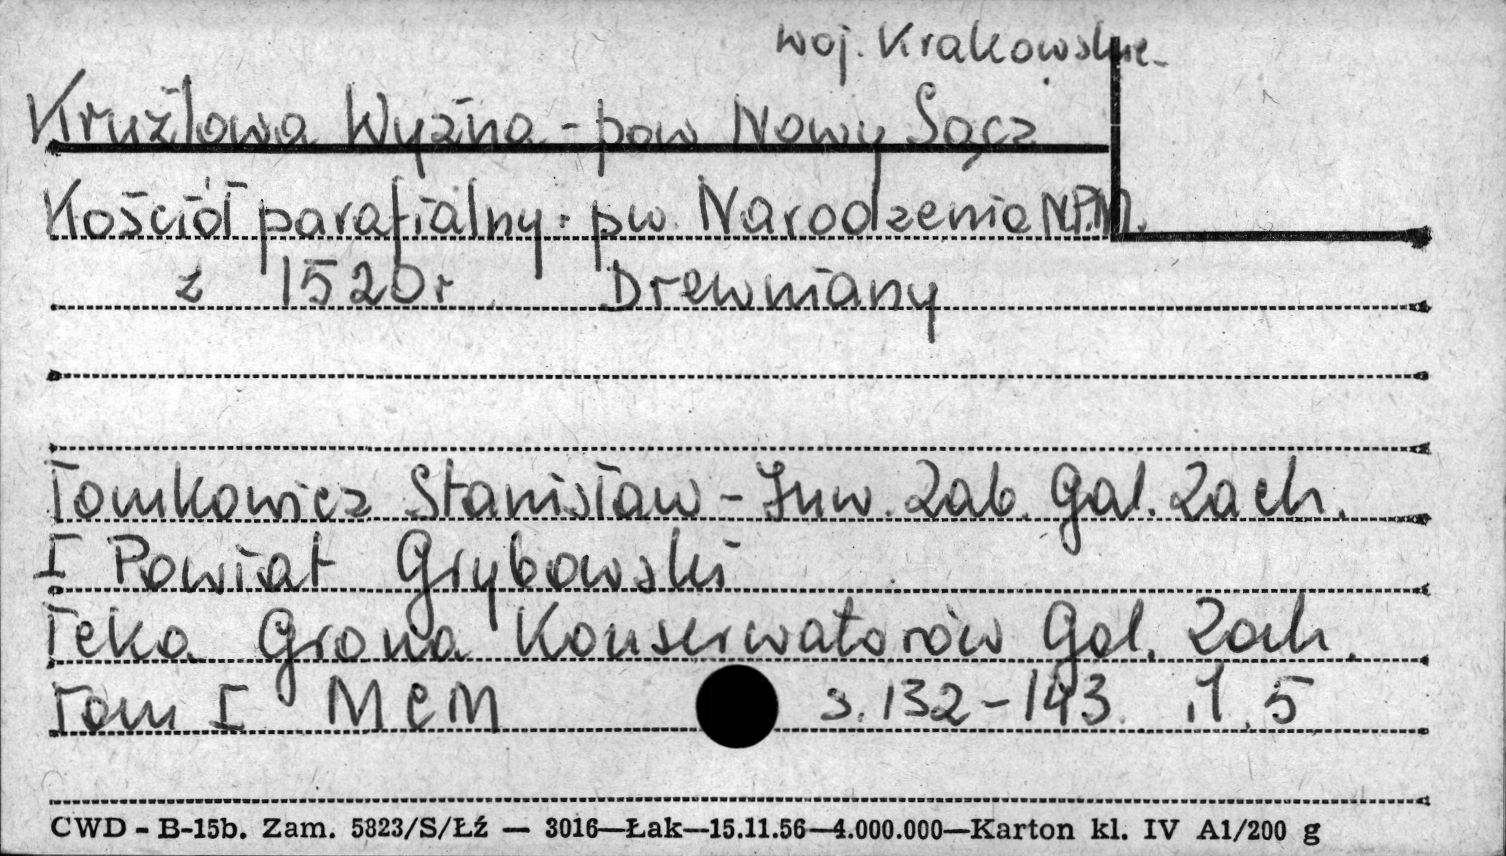 woj. Krakowskie
Krużlowa Wyżna - pow Nowy Sącz
Kościół parafialny. pw. Narodzenia N.P.M.
z 1520r. Drewniany
Tomkowicz Stanisław - Inw. Zab. Gal. Zach.
I Powiat Grybowski
Teka Grona Konserwatorów Gal. Zach.
Tom I MCM s. 132-143. il. 5
CWD - B-15b. Zam. 5823/S/Łź — 3016—Łak—15.11.56—4.000.000—Karton kl. IV A1/200 g